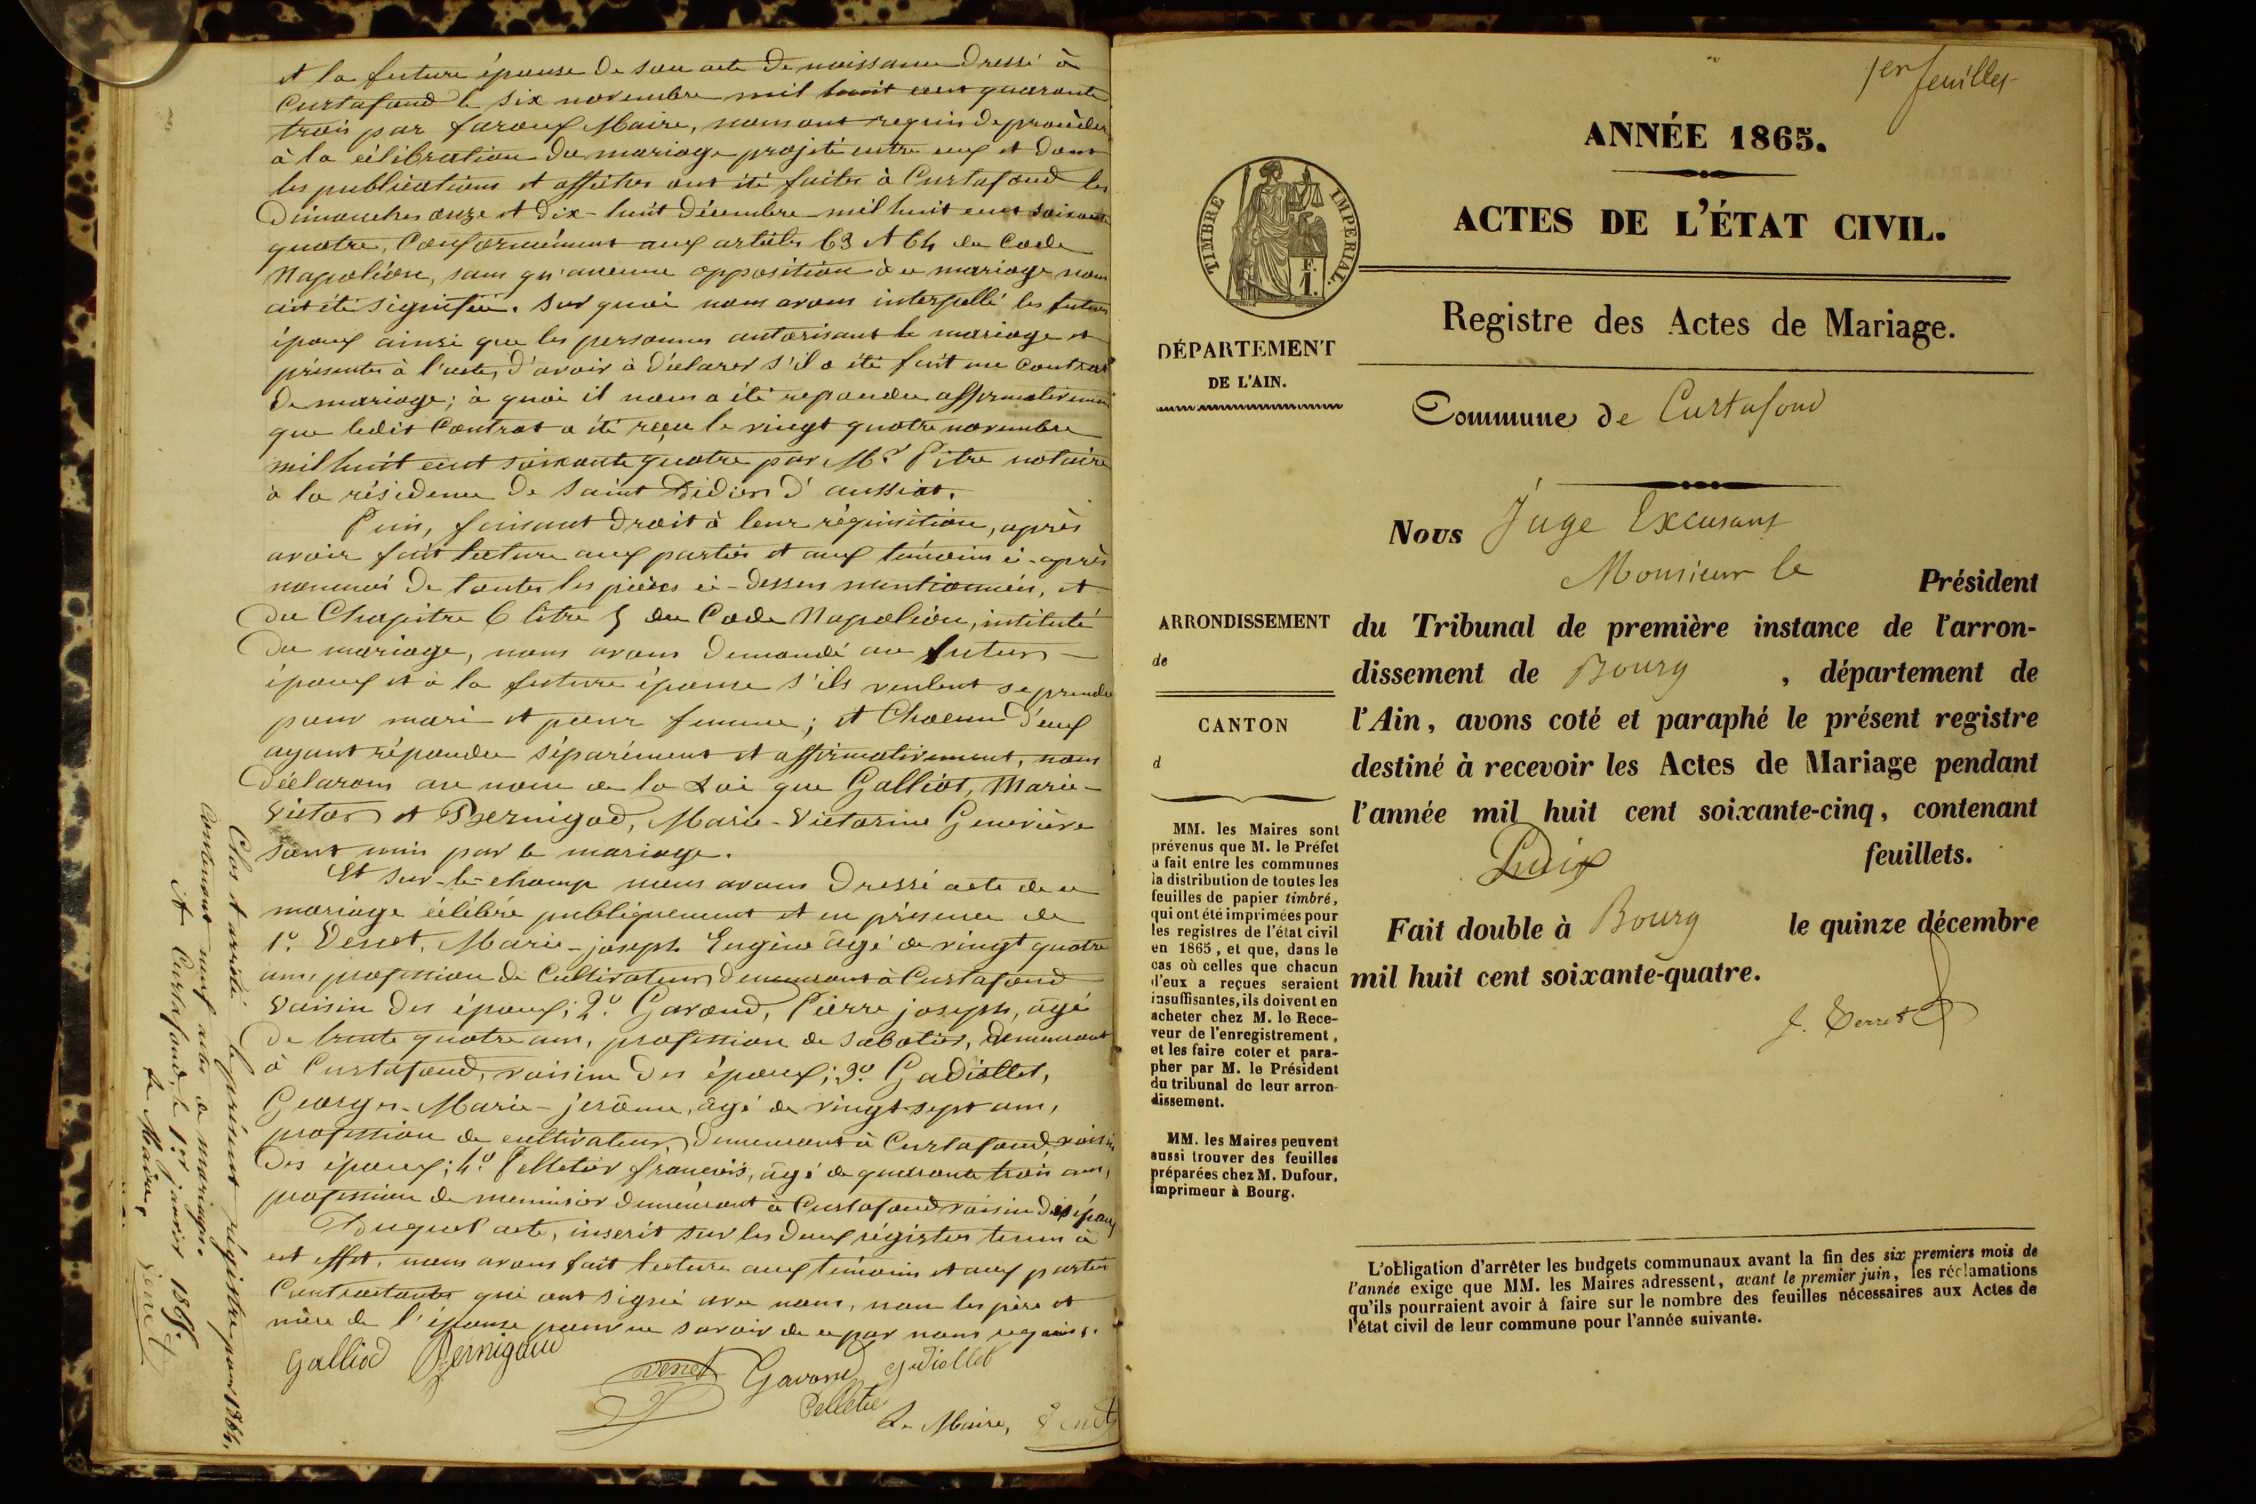 et la future épouse de son acte de naissance dressé à
Curtafond le six novembre mil huit cent quarante
trois par Maire, nous ont requis de procéder
à la célébration du mariage projeté entre eux et dont
les publications et affiches ont été faites à Curtafond les
Dimanches onze et dix-huit Décembre mil huit cent soixante
quatre, Conformément aux articles 63 et 64 du Code
Napoléon, sans qu'aucune opposition à ce mariage nous
ait été signifiée. Sur quoi nous avons interpellé les futurs
époux ainsi que les personnes autorisant le mariage et
présentes à l'acte, d'avoir à déclarer s'il a été fait un contrat
de mariage; à quoi il nous a été repondu affirmativement
que ledit Contrat a été reçu le vingt quatre novembre
mil huit cent soixante quatre par Me Pitre notaire
à la résidence de Saint Didier d'aussiat.
Puis, faisant droit à leur réquisition, après
avoir fait lecture aux parties et aux témoins ci-après
nommés de toutes les pièces ci-dessus mentionnées, et
du Chapitre 6 titre 5 du Code Napoléon, intitulé
du mariage, nous avons demandé au futur
époux et à la future épouse s'ils veulent se prendre
pour mari et pour femme; et Chacun d'eux
ayant répondu séparément et affirmativement, nous
déclarons au nom de la Loi que Galliot, Marie-
Victor et Bernigod, Marie-Victorine Geneviève
sont unis par le mariage.
Et sur-le-champ nous avons dressé acte de ce
mariage célébré publiquement et en présence de
1o. Venet, Marie-joseph Eugène âgé de vingt quatre
ans profession de Cultivateur demeurant à Curtafond
voisin des époux; 2o. Gavand, Pierre joseph, âgé
de trente quatre ans, profession de sabotier, demeurant
à Curtafond, voisin des époux; 3o. Gadiollet,
Georges-Marie-jerôme, âgé de vingt-sept ans,
profession de cultivateur, demeurant à Curtafond, voisin
des époux; 4o. Pelletier françois, âgé de quarante trois ans,
profession de menuisier demeurant à Curtafond voisin des époux
Duquel acte, inscrit sur les deux régistres tenus à
cet effet, nous avons fait lecture aux témoins et aux parties
Contractantes qui ont signé avec nous, non les père et
mère de l'épouse pour ne savoir de ce par nous requis.
Galliod Bernigaud
Venet Gavand gadiollet
Pelletier
Le Maire, Venet
Clos et arrêté le présent régistre pour 1864,
Contenant neuf actes de mariage.
A Curtafond, le 1er janvier 1865.
Le Maire,
Venet
1er feuillet
ANNÉE 1865.
ACTES DE L'ÉTAT CIVIL.
TIMBRE IMPERIAL.
F.
1.
Registre des Actes de Mariage.
DÉPARTEMENT
DE L'AIN.
Commune de Curtafond
Nous Juge Excusant
Monsieur le Président
ARRONDISSEMENT
de
CANTON
d
du Tribunal de première instance de l'arron-
dissement de Bourg , département de
l'Ain, avons coté et paraphé le présent registre
destiné à recevoir les Actes de Mariage pendant
l'année mil huit cent soixante-cinq, contenant
feuillets.
Fait double à Bourg le quinze décembre
mil huit cent soixante-quatre.
MM. les Maires sont
prévenus que M. le Préfet
a fait entre les communes
la distribution de toutes les
feuilles de papier timbré,
qui ont été imprimées pour
les registres de l'état civil
en 1865, et que, dans le
cas où celles que chacun
d'eux a reçues seraient
insuffisantes, ils doivent en
acheter chez M. le Rece-
veur de l'enregistrement,
et les faire coter et para-
pher par M. le Président
du tribunal de leur arron-
dissement.
MM. les Maires peuvent
aussi trouver des feuilles
préparées chez M. Dufour,
imprimeur à Bourg.
L'obligation d'arrêter les budgets communaux avant la fin des six premiers mois de
l'année exige que MM. les Maires adressent, avant le premier juin, les réclamations
qu'ils pourraient avoir à faire sur le nombre des feuilles nécessaires aux Actes de
l'état civil de leur commune pour l'année suivante.